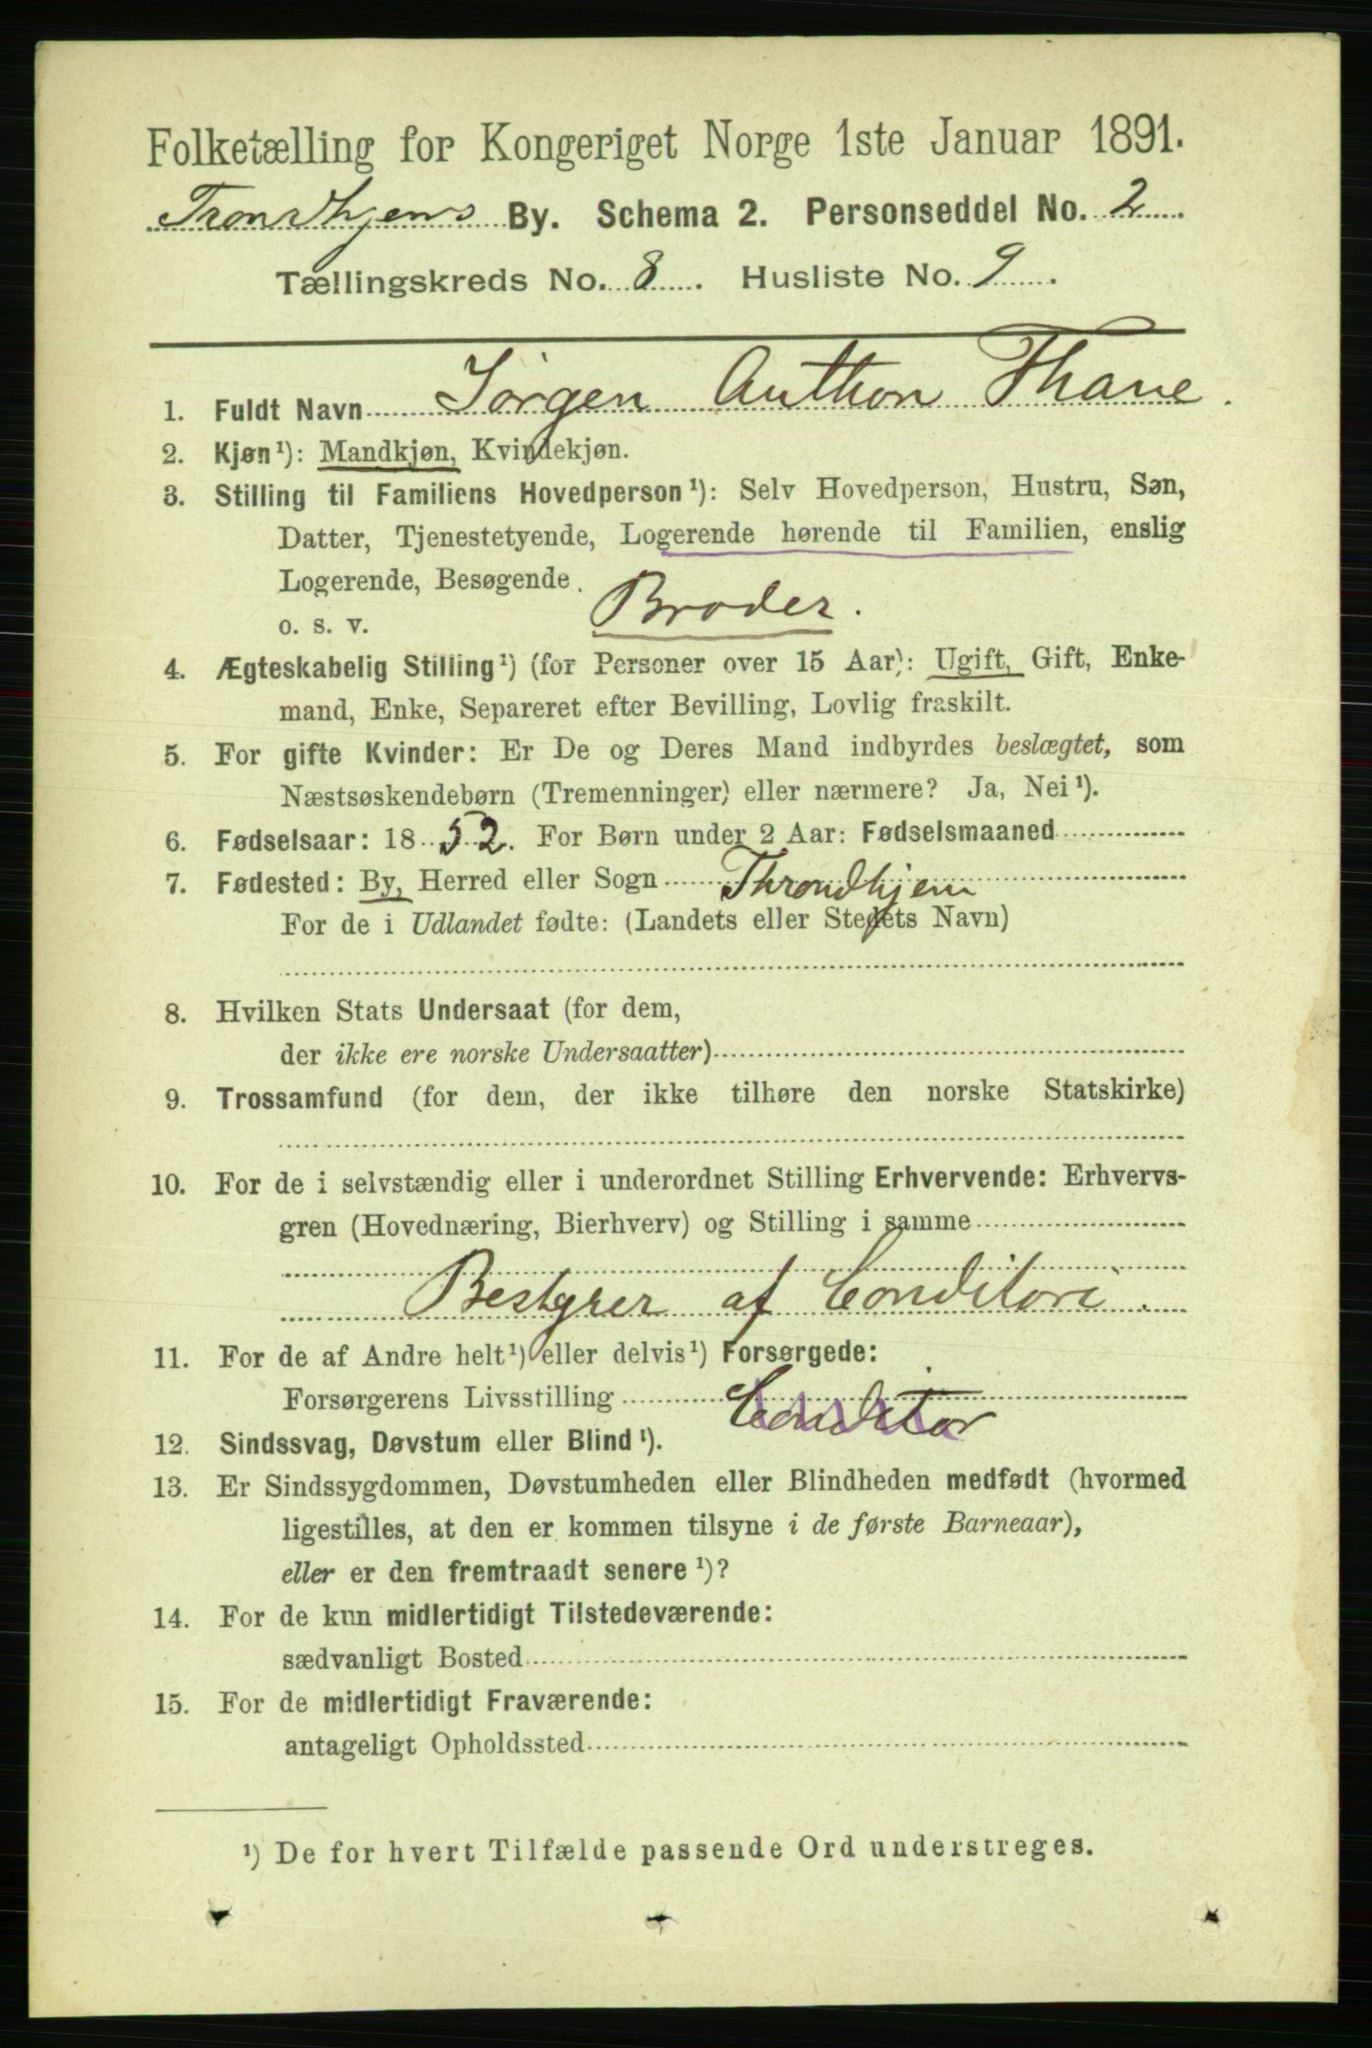 Folketælling for Kongeriget Norge 1ste Januar 1891.
Trondhjems By. Schema 2. Personseddel No. 2
Tællingskreds No. 8. Husliste No. 9.
1. Fuldt Navn Jørgen Anthon Thane.
2. Kjøn¹): Mandkjøn, Kvindekjøn.
3. Stilling til Familiens Hovedperson¹): Selv Hovedperson, Hustru, Søn,
Datter, Tjenestetyende, Logerende hørende til Familien, enslig
Logerende, Besøgende.
o. s. v. Broder.
4. Ægteskabelig Stilling¹) (for Personer over 15 Aar): Ugift, Gift, Enke-
mand, Enke, Separeret efter Bevilling, Lovlig fraskilt.
5. For gifte Kvinder: Er De og Deres Mand indbyrdes beslægtet, som
Næstsøskendebørn (Tremenninger) eller nærmere? Ja, Nei¹).
6. Fødselsaar: 1852. For Børn under 2 Aar: Fødselsmaaned
7. Fødested: By, Herred eller Sogn Throndhjem
For de i Udlandet fødte: (Landets eller Stedets Navn)
8. Hvilken Stats Undersaat (for dem,
der ikke ere norske Undersaatter)
9. Trossamfund (for dem, der ikke tilhøre den norske Statskirke)
10. For de i selvstændig eller i underordnet Stilling Erhvervende: Erhvervs-
gren (Hovednæring, Bierhverv) og Stilling i samme
Bestyrer af Conditori.
11. For de af Andre helt¹) eller delvis¹) Forsørgede:
Forsørgerens Livsstilling Conditor
12. Sindssvag, Døvstum eller Blind¹).
13. Er Sindssygdommen, Døvstumheden eller Blindheden medfødt (hvormed
ligestilles, at den er kommen tilsyne i de første Barneaar),
eller er den fremtraadt senere¹)?
14. For de kun midlertidigt Tilstedeværende:
sædvanligt Bosted
15. For de midlertidigt Fraværende:
antageligt Opholdssted
¹) De for hvert Tilfælde passende Ord understreges.